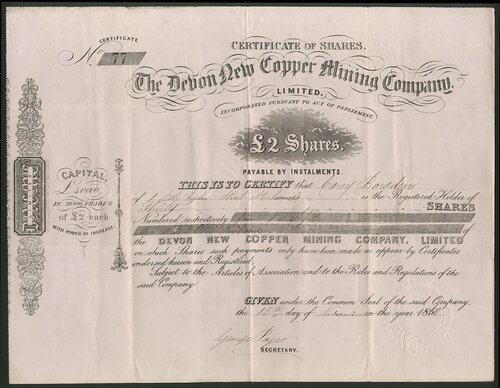 CERTIFICATE
No. 77
CERTIFICATE OF SHARES.
The Devon New Copper Mining Company.
LIMITED.
INCORPORATED PURSUANT TO ACT OF PARLIAMENT.
£2 Shares.
PAYABLE BY INSTALMENTS.
CAPITAL,
£40000,
IN 20000 SHARES
OF £2 each
WITH POWER OF INCREASE.
THIS IS TO CERTIFY that
of Street St James's is the Registered Holder of
SHARES
Numbered respectively
of
the DEVON NEW COPPER MINING COMPANY, LIMITED
on which Shares such payments only have been made as appear by Certificates
endorsed hereon and Registered.
Subject to the Articles of Association and to the Rules and Regulations of the
said Company
GIVEN under the Common Seal of the said Company,
the 15th day of in the year 186
George
SECRETARY.